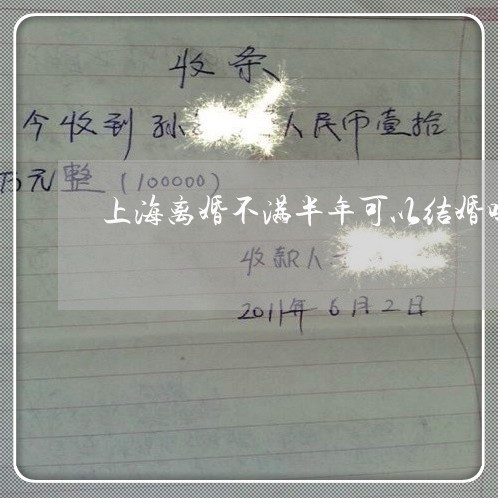 收条
今收到孙 人民币壹拾
万元整(100000)
上海离婚不满半年可以结婚
收款人
2011年6月2日